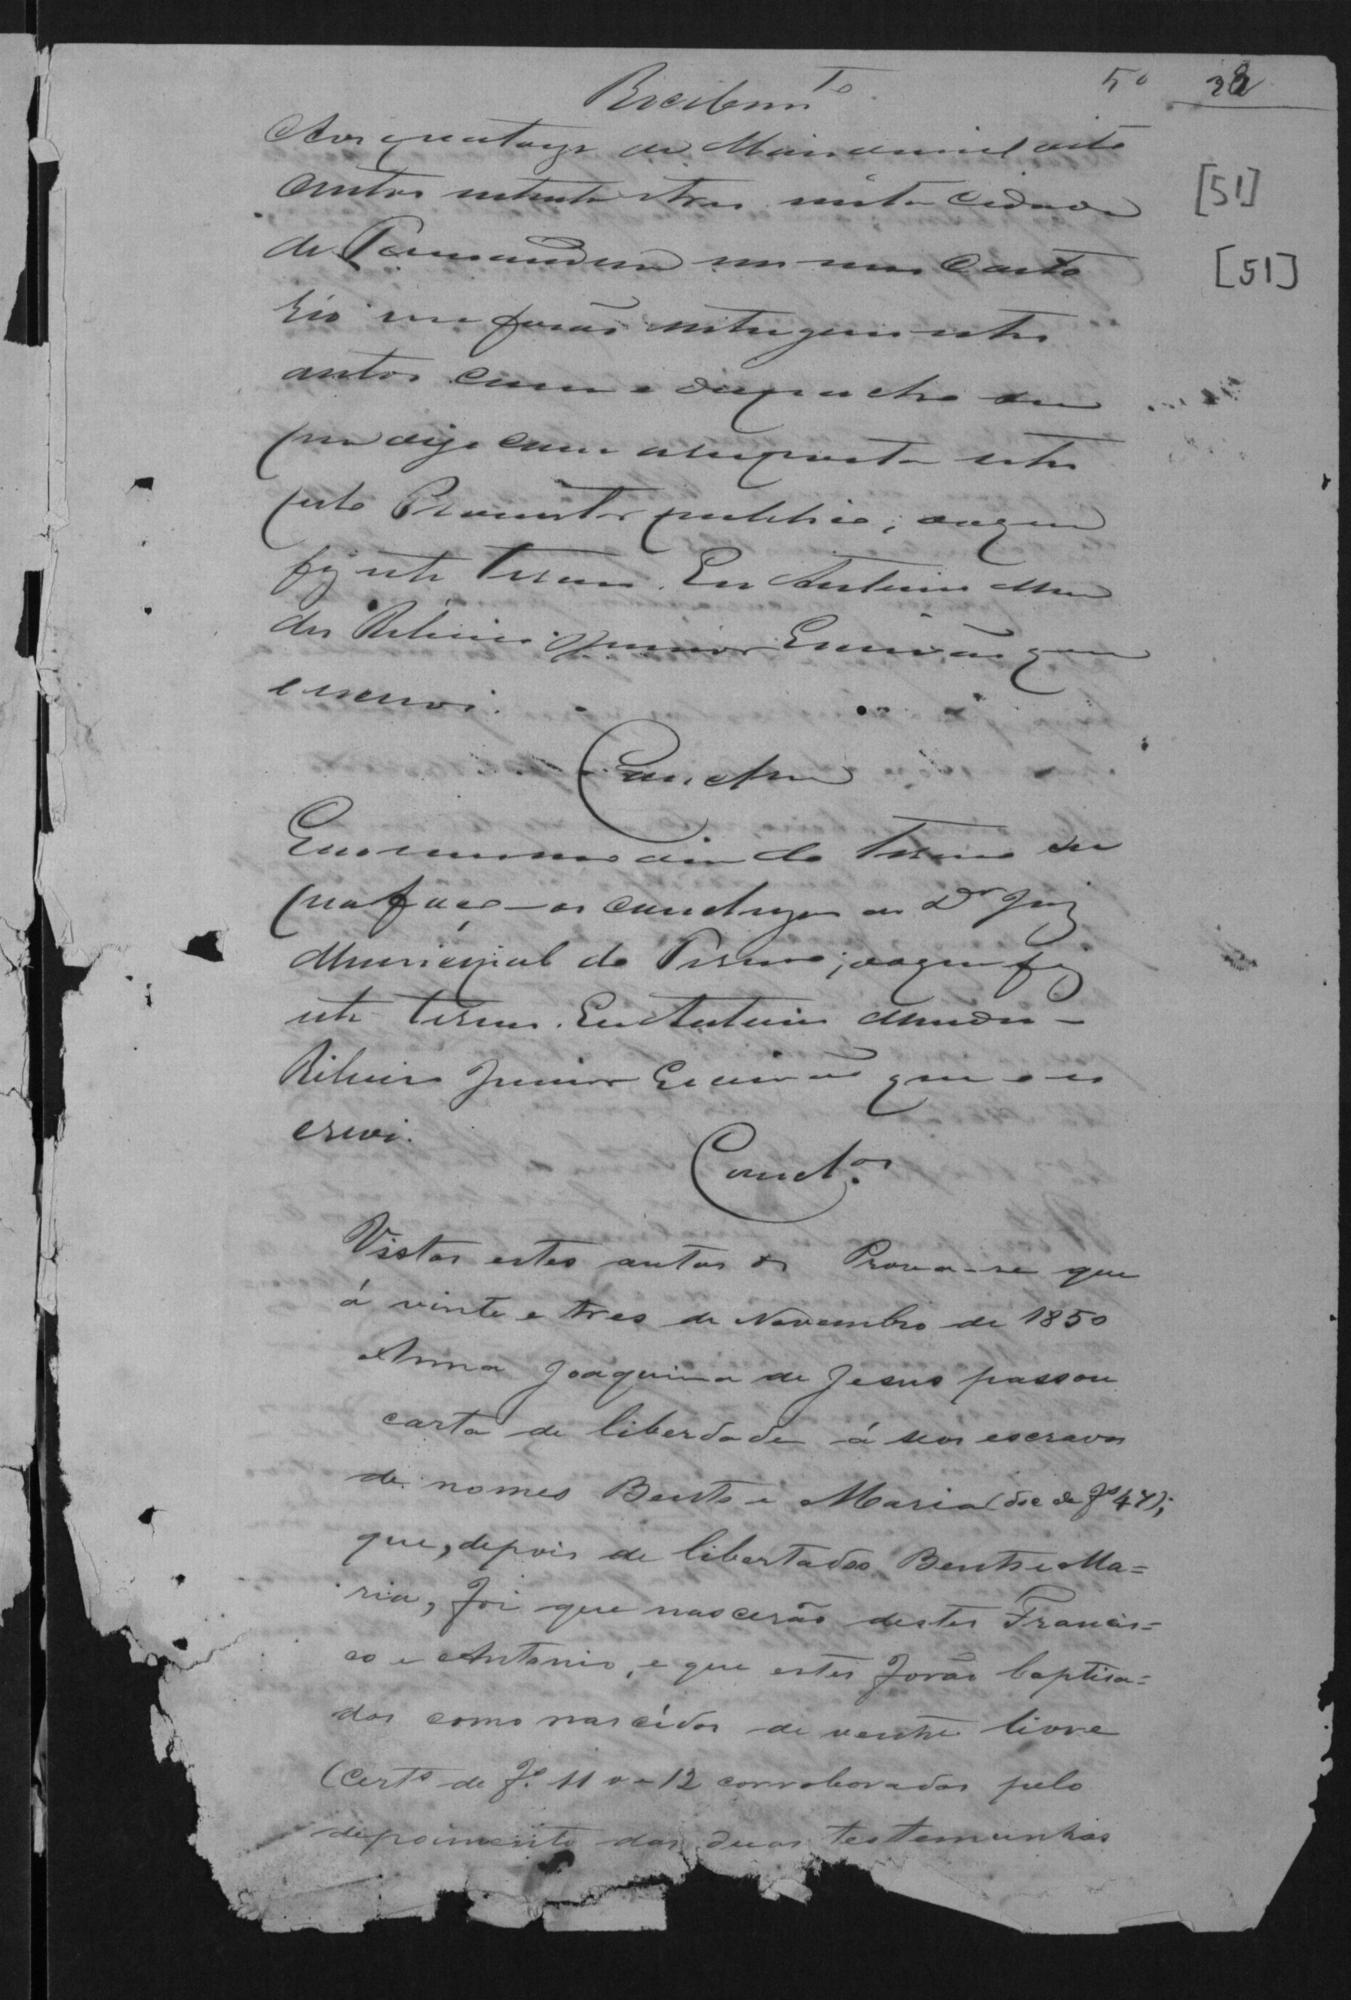 Recebim.to
50 38
Aos quatorze de Maio de mil oito
[51]
centos setenta e tres nesta Cidade
de Parnaundeva em meu Carto
[51]
rio me forão entregues estes
autos com o despacho su
pra digo com a resposta retro
pelo Promotor publico; do que
fiz este Termo. Eu Antonio Men
des Ribeiro Junior Escrivão que
escrevi.
Conclusão
E no mesmo dia do Termo su
pra faço-os conclusos ao Dr Juiz
Municipal do Termo; do que fiz
este termo. Eu Antonio Mendes
Ribeiro Junior Escrivão que o es
crevi.
Concl.os
Vistos estes autos &. Prova-se que
á vinte e tres de Novembro de 1850
Anna Joaquina de Jesus passou
carta de liberdade á seos escravos
de nomes Bento e Maria (doc de fs 47);
que, depois de libertados Bento e Ma=
ria, foi que nascerão destes Francis=
co e Antonio, e que estes forão baptisa=
dos como nascidos de ventre livre
(Cert.s de fs. 11 v e 12 corroboradas pelo
depoimento das duas testemunhas